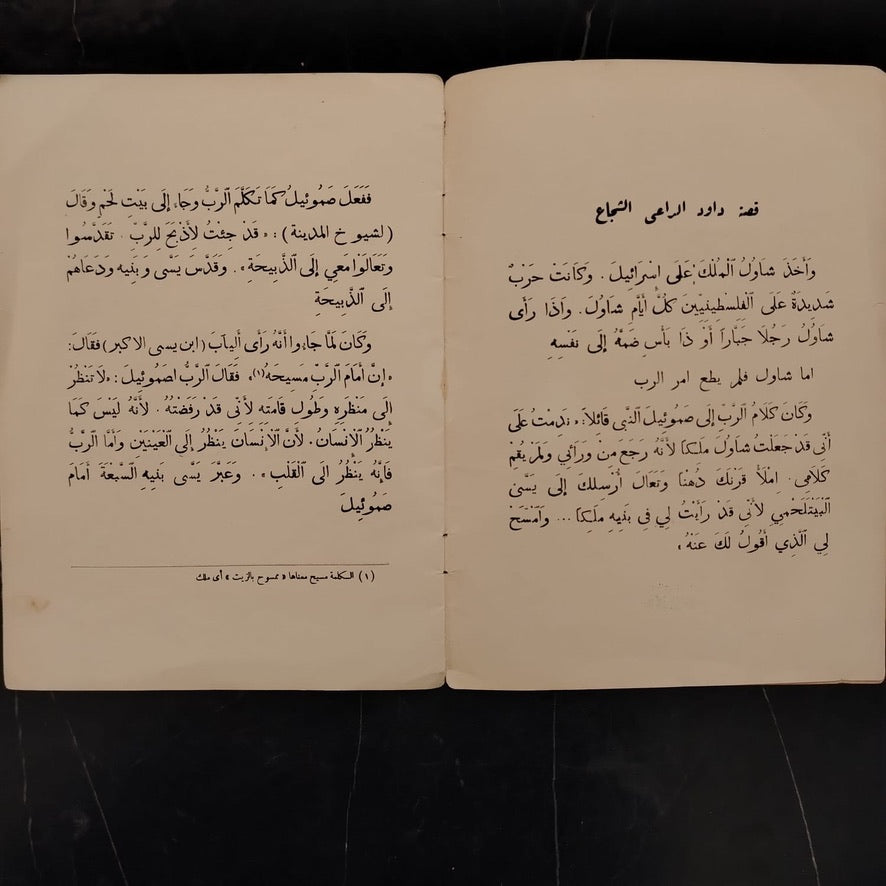 قصة داود الراعى الشجاع
وَأَخَذَ شَاوُلُ ٱلْمُلْكَ عَلَى إِسْرَائِيلَ. وَكَانَتْ حَرْبٌ
شَدِيدَةٌ عَلَى ٱلْفِلِسْطِينِيِّينَ كُلَّ أَيَّامِ شَاوُلَ. وَإِذَا رَأَى
شَاوُلُ رَجُلًا جَبَّارًا أَوْ ذَا بَأْسٍ ضَمَّهُ إِلَى نَفْسِهِ
اما شاول فلم يطع امر الرب
وَكَانَ كَلَامُ ٱلرَّبِّ إِلَى صَمُوئِيلَ النَّبِى قَائِلًا: «نَدِمْتُ عَلَى
أَنِّى قَدْ جَعَلْتُ شَاوُلَ مَلِكًا لِأَنَّهُ رَجَعَ مِنْ وَرَائِي وَلَمْ يُقِمْ
كَلَامِى. اِمْلَأْ قَرْنَكَ دُهْنًا وَتَعَالَ أُرْسِلْكَ إِلَى يَسَّى
ٱلْبَيْتَلَحْمِيِّ لِأَنِّى قَدْ رَأَيْتُ لِي فِى بَنِيهِ مَلِكًا ... وَٱمْسَحْ
لِي ٱلَّذِي أَقُولُ لَكَ عَنْهُ»
فَفَعَلَ صَمُوئِيلُ كَمَا تَكَلَّمَ ٱلرَّبُّ وَجَاءَ إِلَى بَيْتِ لَحْمٍ وَقَالَ
(لشيوخ المدينة): «قَدْ جِئتُ لِأَذْبَحَ لِلرَّبِّ. تَقَدَّسُوا
وَتَعَالَوْا مَعِي إِلَى ٱلذَّبِيحَةِ». وَقَدَّسَ يَسَّى وَبَنِيهِ وَدَعَاهُمْ
إِلَى ٱلذَّبِيحَةِ
وَكَانَ لَمَّا جَاءُوا أَنَّهُ رَأَى أَلِيآبَ (ابن يسى الاكبر) فَقَالَ:
«إِنَّ أَمَامَ ٱلرَّبِّ مَسِيحَهُ(١)» فَقَالَ ٱلرَّبُّ لِصَمُوئِيلَ: «لَا تَنْظُرْ
إِلَى مَنْظَرِهِ وَطُولِ قَامَتِهِ لِأَنِّى قَدْ رَفَضْتُهُ. لِأَنَّهُ لَيْسَ كَمَا
يَنْظُرُ ٱلْإِنْسَانُ. لِأَنَّ ٱلْإِنْسَانَ يَنْظُرُ إِلَى ٱلْعَيْنَيْنِ وَأَمَّا ٱلرَّبُّ
فَإِنَّهُ يَنْظُرُ الى ٱلْقَلْبِ». وَعَبَّرَ يَسَّى بَنِيهِ ٱلسَّبْعَةَ أَمَامَ
صَمُوئِيلَ
(١) الكلمة مسيح معناها «ممسوح بالزيت» أى ملك